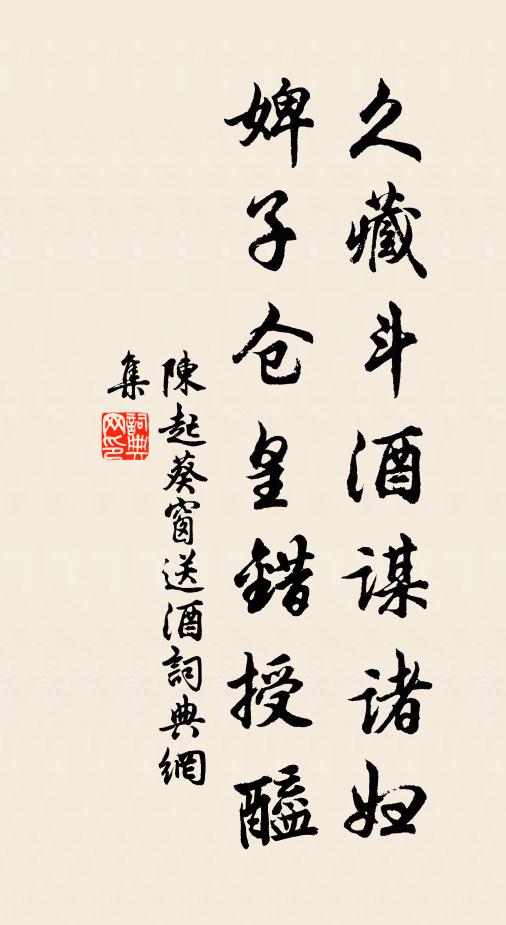 久藏斗酒謀諸妇
婢子仓皇錯授醯
陳起葵窗送酒詞典網
集
詞典網印